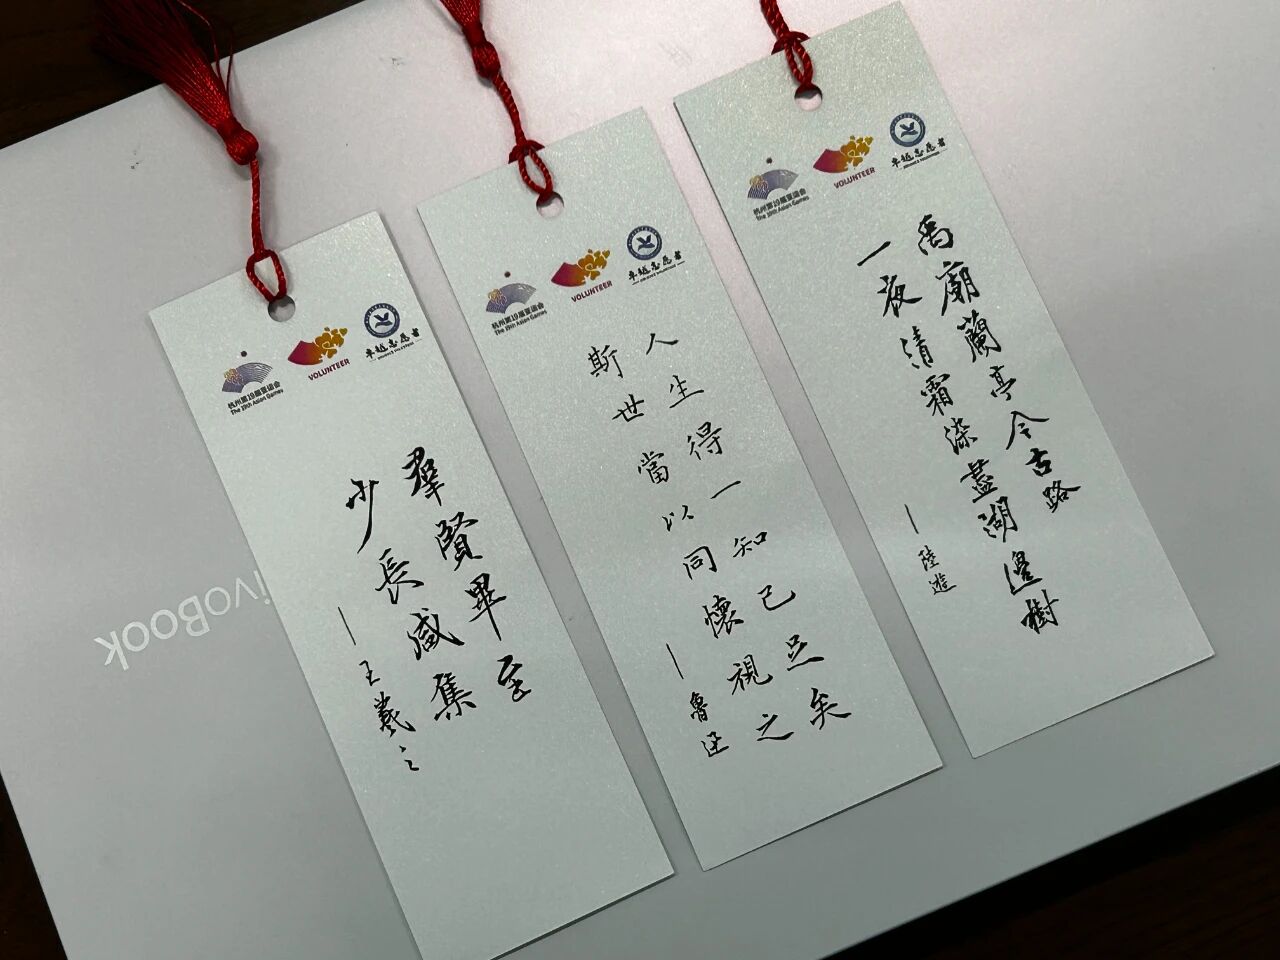 杭州第19届亚运会
The 19th Asian Games
VOLUNTEER
卓越志愿者
羣賢畢至
少長咸集
—王羲之
杭州第19届亚运会
The 19th Asian Games
VOLUNTEER
卓越志愿者
人生得一知己足矣
斯世當以同懷視之
—魯迅
杭州第19届亚运会
The 19th Asian Games
VOLUNTEER
卓越志愿者
禹廟蘭亭今古路
一夜清霜染盡湖邊樹
—陸遊
ivoBook